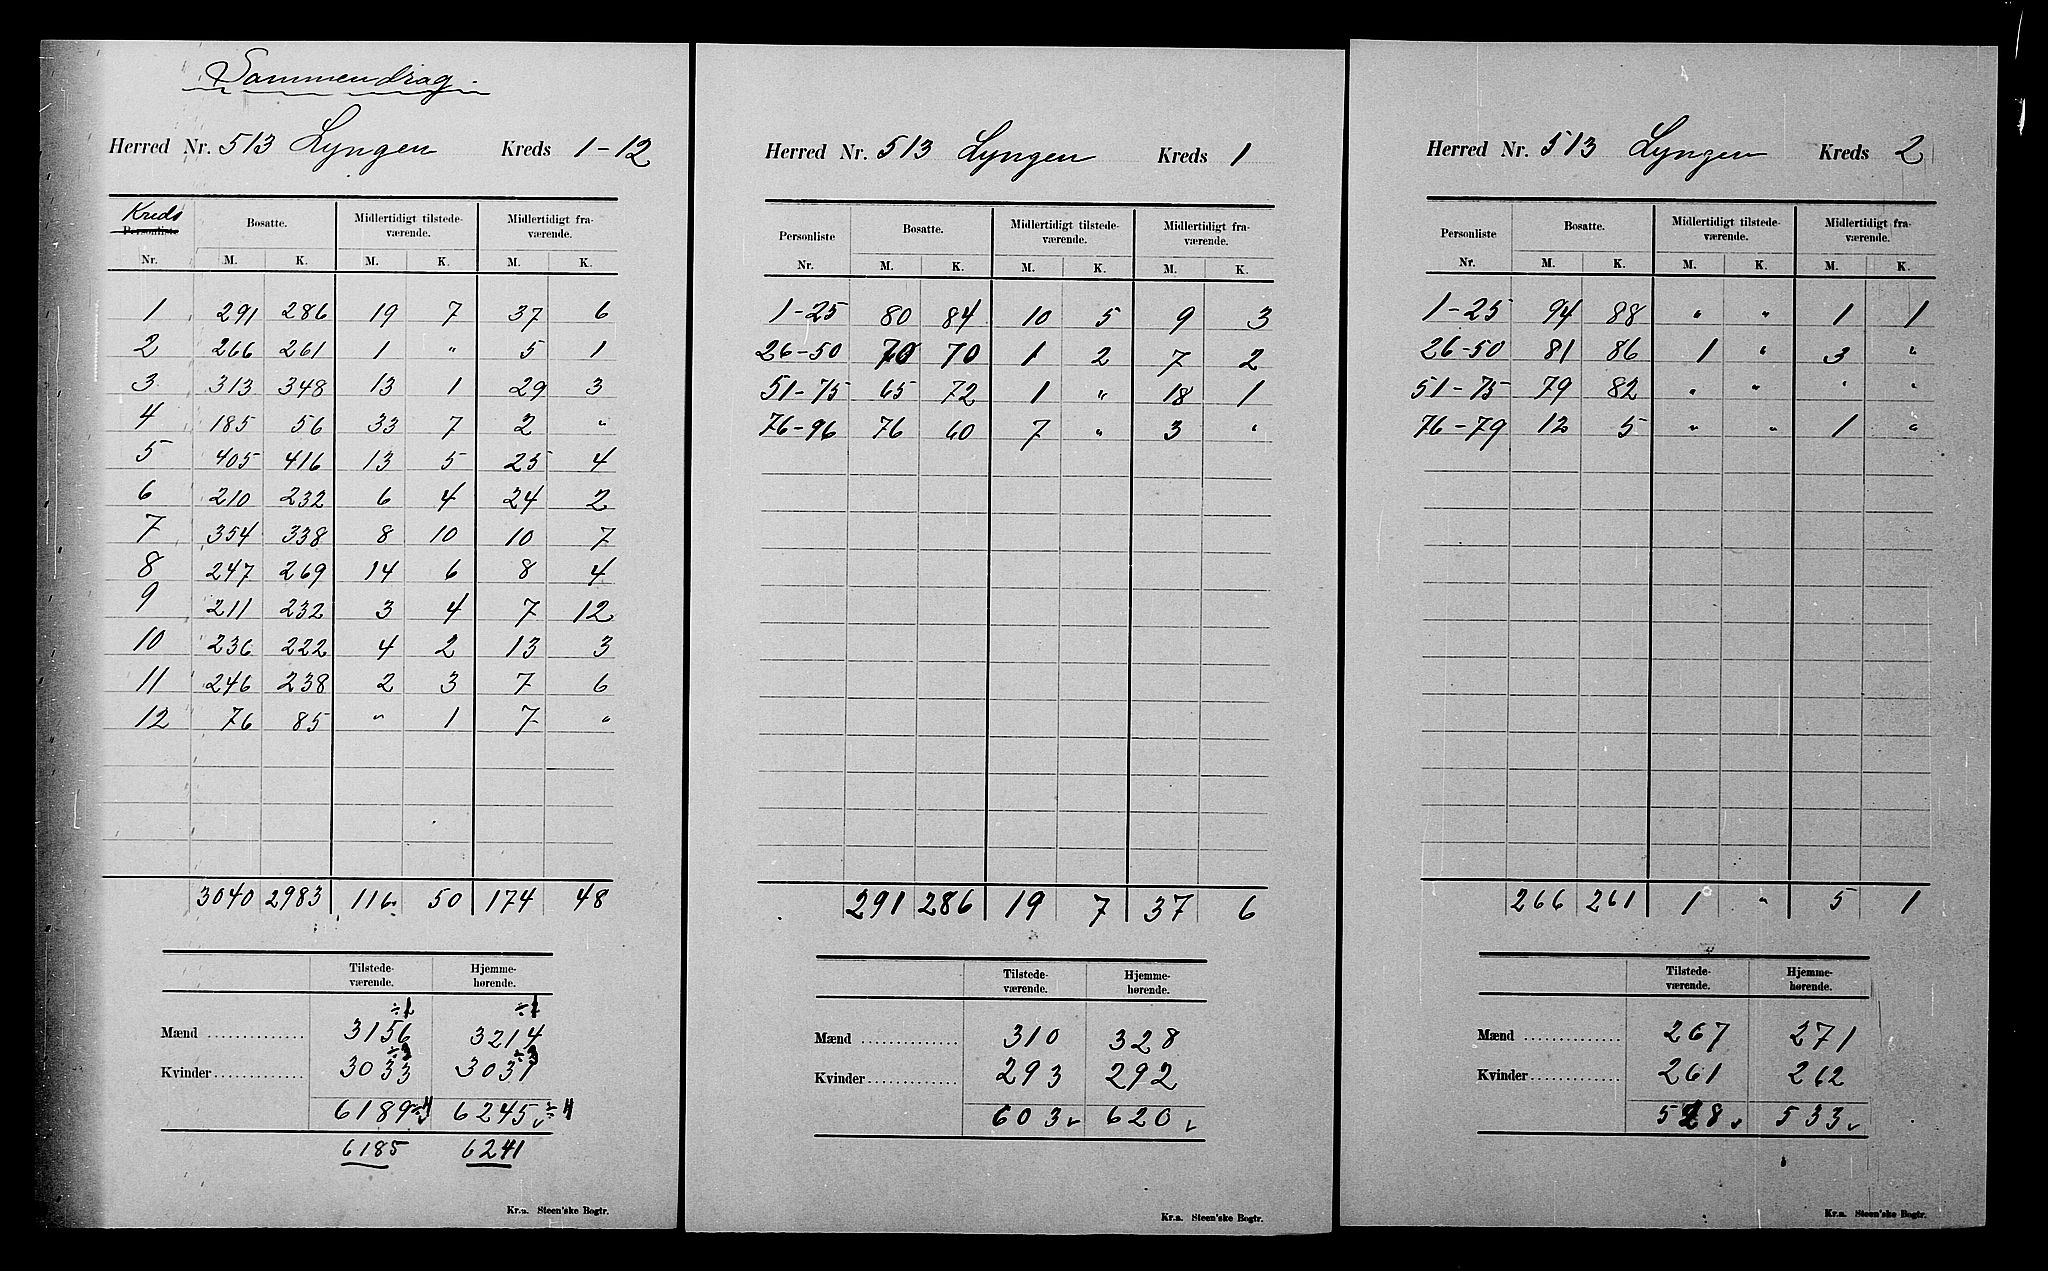 Sammendrag.
Herred Nr. 513 Lyngen Kreds 1-12
Kreds
Personliste Bosatte. Midlertidigt tilstede- Midlertidigt fra-
værende. værende.
Nr. M. K. M. K. M. K.
1 291 286 19 7 37 6
2 266 261 1 " 5 1
3 313 348 13 1 29 3
4 185 56 33 7 2 "
5 405 416 13 5 25 4
6 210 232 6 4 24 2
7 354 338 8 10 10 7
8 247 269 14 6 8 4
9 211 232 3 4 7 12
10 236 222 4 2 13 3
11 246 238 2 3 7 6
12 76 85 " 1 7 "
3040 2983 116 50 174 48
Tilstede- Hjemme-
værende. hørende.
Mænd 3156 3214
Kvinder 3033 3031
6189 ÷4 6245 ÷4
6185 6241
Kr.a. Steen'ske Bogtr.
Herred Nr. 513 Lyngen Kreds 1
Personliste Bosatte. Midlertidigt tilstede- Midlertidigt fra-
værende. værende.
Nr. M. K. M. K. M. K.
1-25 80 84 10 5 9 3
26-50 70 70 1 2 7 2
51-75 65 72 1 " 18 1
76-96 76 60 7 " 3 "
291 286 19 7 37 6
Tilstede- Hjemme-
værende. hørende.
Mænd 310 328
Kvinder 293 292
603 620
Kr.a. Steen'ske Bogtr.
Herred Nr. 513 Lyngen Kreds 2
Personliste Bosatte. Midlertidigt tilstede- Midlertidigt fra-
værende. værende.
Nr. M. K. M. K. M. K.
1-25 94 88 " " 1 1
26-50 81 86 1 " 3 "
51-75 79 82 " " " "
76-79 12 5 " " 1 "
266 261 1 " 5 1
Tilstede- Hjemme-
værende. hørende.
Mænd 267 271
Kvinder 261 262
528 533
Kr.a. Steen'ske Bogtr.